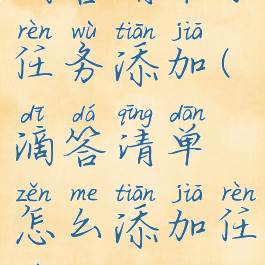 rèn wù tiān jiā
任务添加(
dī dá qīng dān
滴答清单
zěn me tiān jiā rèn
怎么添加任